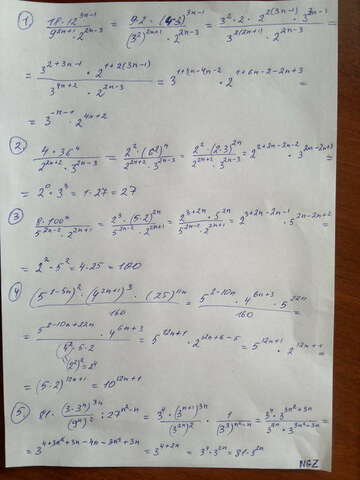 ① \frac{18 \cdot 12^{3n-1}}{9^{2n+1} \cdot 2^{2n-3}} = \frac{9 \cdot 2 \cdot (4 \cdot 3)^{3n-1}}{(3^2)^{2n+1} \cdot 2^{2n-3}} = \frac{3^2 \cdot 2 \cdot 2^{2(3n-1)} \cdot 3^{3n-1}}{3^{2(2n+1)} \cdot 2^{2n-3}} =
= \frac{3^{2+3n-1} \cdot 2^{1+2(3n-1)}}{3^{4n+2} \cdot 2^{2n-3}} = 3^{1+3n-4n-2} \cdot 2^{1+6n-2-2n+3} =
= 3^{-n-1} \cdot 2^{4n+2}
② \frac{4 \cdot 36^n}{2^{2n+2} \cdot 3^{2n-3}} = \frac{2^2 \cdot (6^2)^n}{2^{2n+2} \cdot 3^{2n-3}} = \frac{2^2 \cdot (2 \cdot 3)^{2n}}{2^{2n+2} \cdot 3^{2n-3}} = 2^{2+2n-2n-2} \cdot 3^{2n-2n+3} =
= 2^0 \cdot 3^3 = 1 \cdot 27 = 27
③ \frac{8 \cdot 100^n}{5^{2n-2} \cdot 2^{2n+1}} = \frac{2^3 \cdot (5 \cdot 2)^{2n}}{5^{2n-2} \cdot 2^{2n+1}} = \frac{2^{3+2n} \cdot 5^{2n}}{5^{2n-2} \cdot 2^{2n+1}} = 2^{3+2n-2n-1} \cdot 5^{2n-2n+2} =
= 2^2 \cdot 5^2 = 4 \cdot 25 = 100
④ \frac{(5^{1-5n})^2 \cdot (4^{2n+1})^3 \cdot (25)^{11n}}{160} = \frac{5^{2-10n} \cdot 4^{6n+3} \cdot 5^{22n}}{160} =
= \frac{5^{2-10n+22n} \cdot 4^{6n+3}}{4^2 \cdot 5 \cdot 2} = 5^{12n+1} \cdot 2^{12n+6-5} = 5^{12n+1} \cdot 2^{12n+1} =
(2^2)^2 = 2^4
= (5 \cdot 2)^{12n+1} = 10^{12n+1}
⑤ 81 \cdot \frac{(3 \cdot 3^n)^{3n}}{(9^n)^2} : 27^{n^2-n} = \frac{3^4 \cdot (3^{n+1})^{3n}}{(3^{2n})^2} \cdot \frac{1}{(3^3)^{n^2-n}} = \frac{3^4 \cdot 3^{3n^2+3n}}{3^{4n} \cdot 3^{3n^2-3n}} =
= 3^{4+3n^2+3n-4n-3n^2+3n} = 3^{4+2n} = 3^4 \cdot 3^{2n} = 81 \cdot 3^{2n}
NGZ